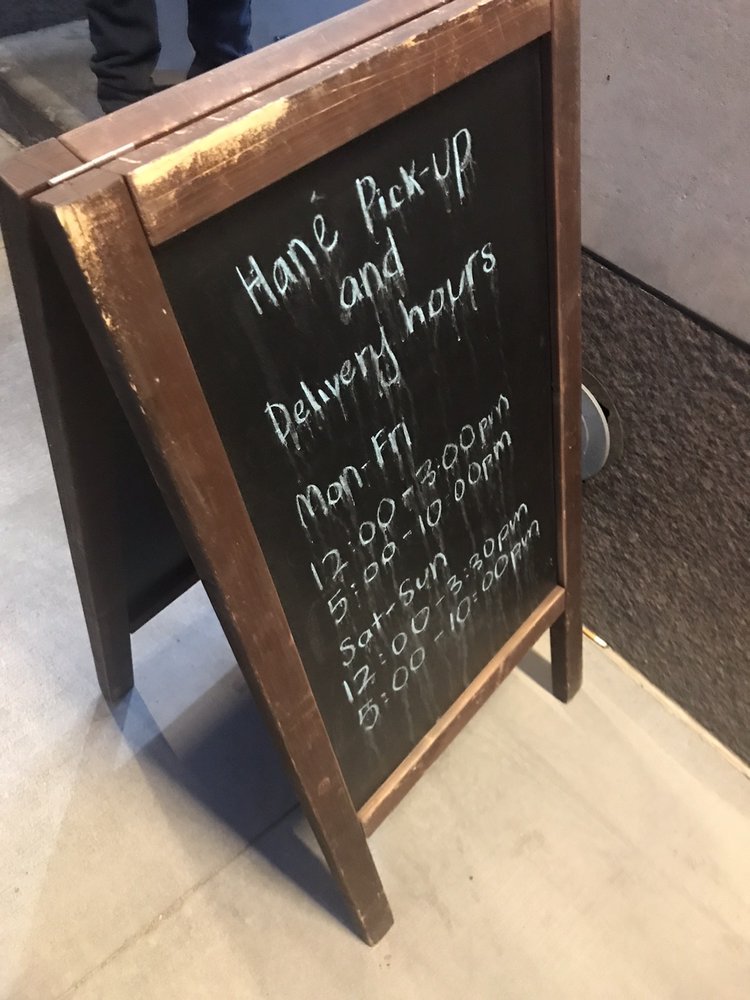 Hanê Pick-up
and
Delivery hours
Mon-Fri
12:00-3:00pm
5:00-10:00pm
Sat-Sun
12:00-3:30pm
5:00-10:00pm